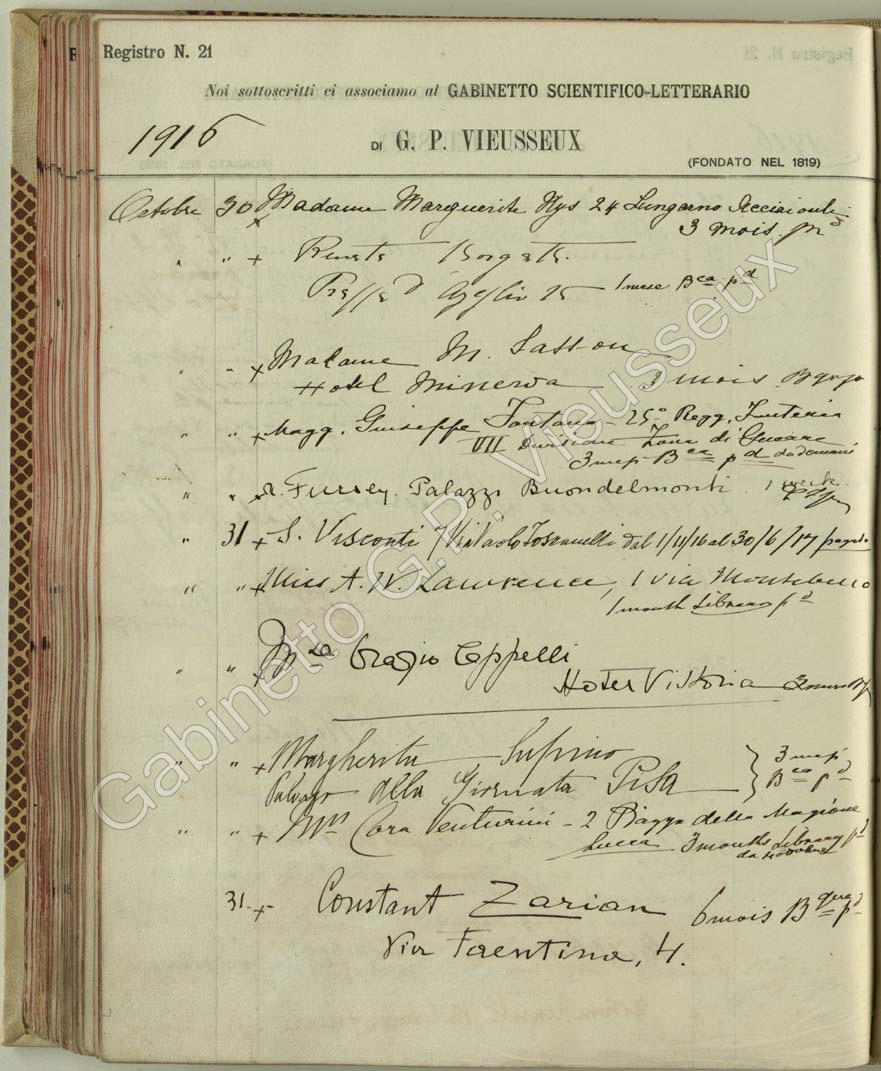 Registro N. 21
Noi sottoscritti ci associamo al GABINETTO SCIENTIFICO-LETTERARIO
1916
DI G. P. VIEUSSEUX
(FONDATO NEL 1819)
Octobre 30 x Madame Marguerite Nys 24 Lungarno Acciaiuoli
3 mois pd
" " + Borgatti
d'Azeglio 15 1 mese Bca pd
" " x Madame M. Sassoon
Hotel Minerva 3 mois
" " x Magg. Giuseppe Fontana - 25° Regg. Fanteria
VII Divisione Zona di Guerra
3 mesi Bca pd da domani
" " x Fursey. Palazzo Buondelmonti. 1 week
" 31 + S. Visconti 7 Via Paolo Toscanelli dal 1/11/16 al 30/6/17 pagato
" " x Miss A. W. Lawrence, 1 via Montebello
1 month Library pd
" " x Orazio Cappelli
Hotel Vittoria 3 mesi
" " + Margherita Supino 3 mesi
Palazzo alla Giornata Pisa Bca pd
" " + Mrs Cora Venturini - 2 Piazza della Magione
Lucca 3 months Library pd
31 + Constant Zarian 6 mois Bque pd
Via Faentina, 4.
Gabinetto G.P. Vieusseux